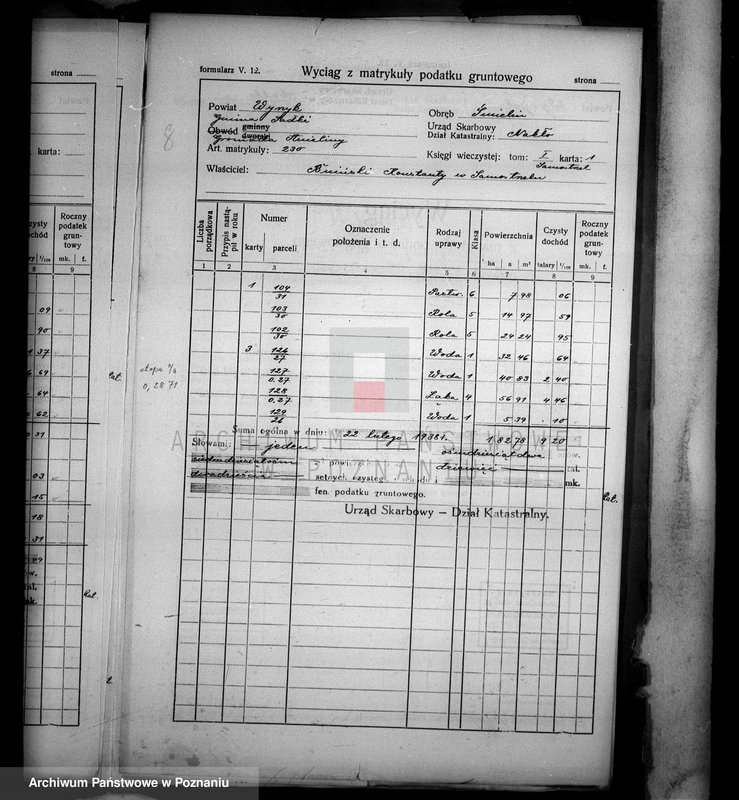 strona
formularz V. 12.
Wyciąg z matrykuły podatku gruntowego
strona
8
Powiat Wyrzysk
Gmina Sadki
Obwód gminny dworski
Gromada
Art. matrykuły: 230
Obręb
Urząd Skarbowy
Dział Katastralny: Nakło
Księgi wieczystej: tom: I karta: 1
Samostrzel
Właściciel: Bniński Konstanty w Samostrzelu
karta:
Liczba porządkowa
Przypis nastąpił w roku
Numer
karty
parceli
Oznaczenie położenia i t. d.
Rodzaj uprawy
Klasa
Powierzchnia
ha a m²
Czysty dochód
talary 1/100
Roczny podatek gruntowy
mk. f.
1 2 3 4 5 6 7 8 9
1 104/31 Pastw. 6 7 98 06
103/30 Rola 5 14 97 59
102/30 Rola 5 24 24 95
3 126/27 Woda 1 32 46 64
127/0,27 Woda 1 40 83 2 40
128/0,27 Łąka 4 56 91 4 46
129/26 Woda 1 5 39 10
stopa %
0,2871
Suma ogólna w dniu: 22 lutego 1938 r. 1 82 78 9 20
Słowami: jeden ośmdziesiątdwa
dziewięć tal.
dwadzieścia setnych czystego dochodu i mk.
fen. podatku gruntowego.
Urząd Skarbowy — Dział Katastralny.
ARCHIWUM PAŃSTWOWE
W POZNANIU
czysty dochód
Roczny podatek gruntowy
mk. f.
8 9
09
90
1 37
69
64
62
31
03
15
18
31
Archiwum Państwowe w Poznaniu